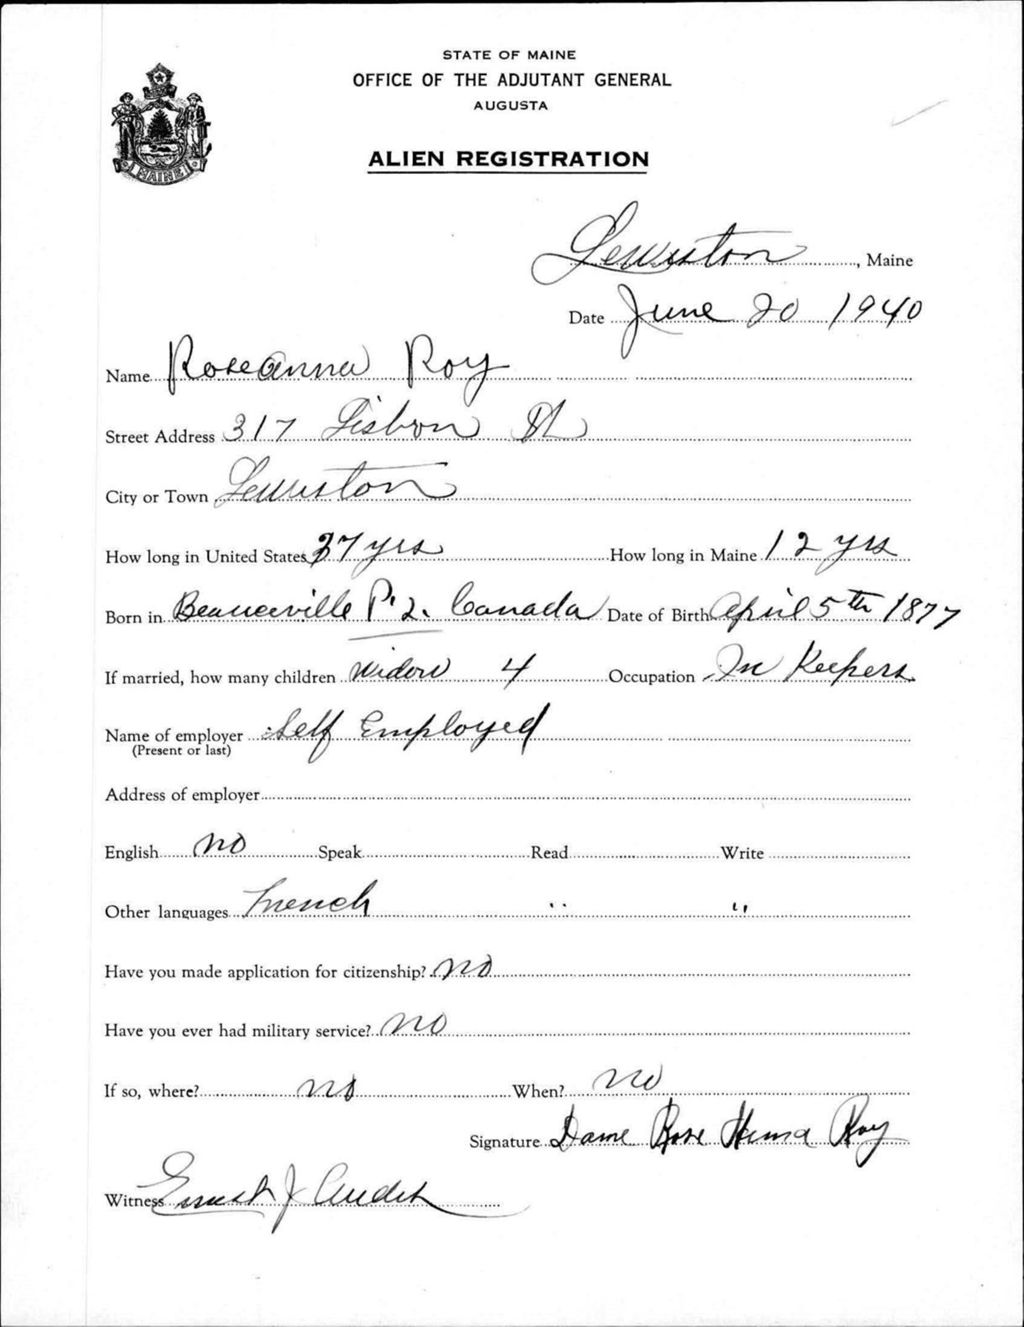 STATE OF MAINE
OFFICE OF THE ADJUTANT GENERAL
AUGUSTA
MAINE
ALIEN REGISTRATION
Lewiston, Maine
Date June 20 1940
Name Roseanna Roy
Street Address 317 Lisbon St
City or Town Lewiston
How long in United States 37 yrs How long in Maine 12 yrs
Born in Beauceville P.Q. Canada Date of Birth April 5th 1877
If married, how many children Widow 4 Occupation In Keepers
Name of employer Self Employed
(Present or last)
Address of employer
English no Speak Read Write
Other languages French " "
Have you made application for citizenship? no
Have you ever had military service? no
If so, where? no When? no
Signature Dame Rose Roy
Witness Ernest J Audet